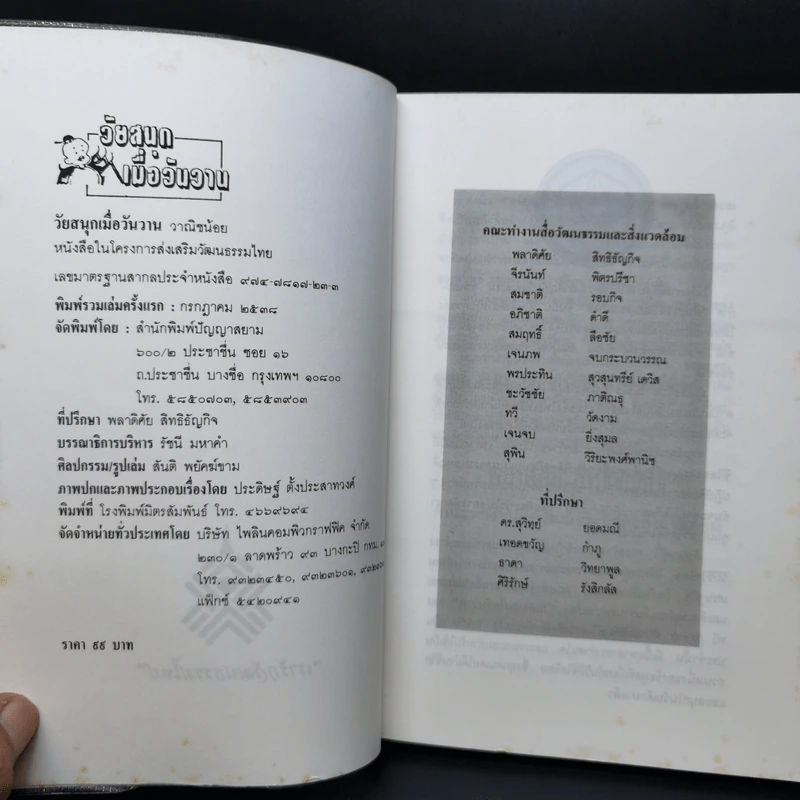 วัยสนุก
เมื่อวันวาน
วัยสนุกเมื่อวันวาน วาณิชน้อย
หนังสือในโครงการส่งเสริมวัฒนธรรมไทย
เลขมาตรฐานสากลประจำหนังสือ ๙๗๔-๗๘๑๗-๒๓-๓
พิมพ์รวมเล่มครั้งแรก : กรกฎาคม ๒๕๓๘
จัดพิมพ์โดย : สำนักพิมพ์ปัญญาสยาม
๖๐๐/๒ ประชาชื่น ซอย ๑๖
ถ.ประชาชื่น บางซื่อ กรุงเทพฯ ๑๐๘๐๐
โทร. ๕๘๕๐๗๐๓, ๕๘๕๓๙๐๓
ที่ปรึกษา พลาดิศัย สิทธิธัญกิจ
บรรณาธิการบริหาร รัชนี มหาคำ
ศิลปกรรม/รูปเล่ม สันติ พยัคฆ์ขาม
ภาพปกและภาพประกอบเรื่องโดย ประดิษฐ์ ตั้งประสาทวงศ์
พิมพ์ที่ โรงพิมพ์มิตรสัมพันธ์ โทร. ๔๖๖๙๖๙๔
จัดจำหน่ายทั่วประเทศโดย บริษัท ไพลินคอมพิวกราฟฟิค จำกัด
๒๓๐/๑ ลาดพร้าว ๙๓ บางกะปิ กทม.
โทร. ๙๓๒๓๔๕๐, ๙๓๒๓๖๐๑,
แฟ็กซ์ ๕๔๒๐๙๔๑
ราคา ๙๙ บาท
คณะทำงานสื่อวัฒนธรรมและสิ่งแวดล้อม
พลาดิศัย สิทธิธัญกิจ
จีรนันท์ พิตรปรีชา
สมชาติ รอบกิจ
อภิชาติ ดำดี
สมฤทธิ์ ลือชัย
เจนภพ จบกระบวนวรรณ
พรประทิน สุวสุนทรีย์ เดวิส
ชะวัชชัย ภาติณธุ
ทวี วัดงาม
เจนจบ ยิ่งสุมล
สุพิน วิริยะพงศ์พานิช
ที่ปรึกษา
ดร.สุวิทย์ ยอดมณี
เทอดขวัญ กำภู
ธาดา วิทยาพูล
ศิริรักษ์ รังสิกลัส